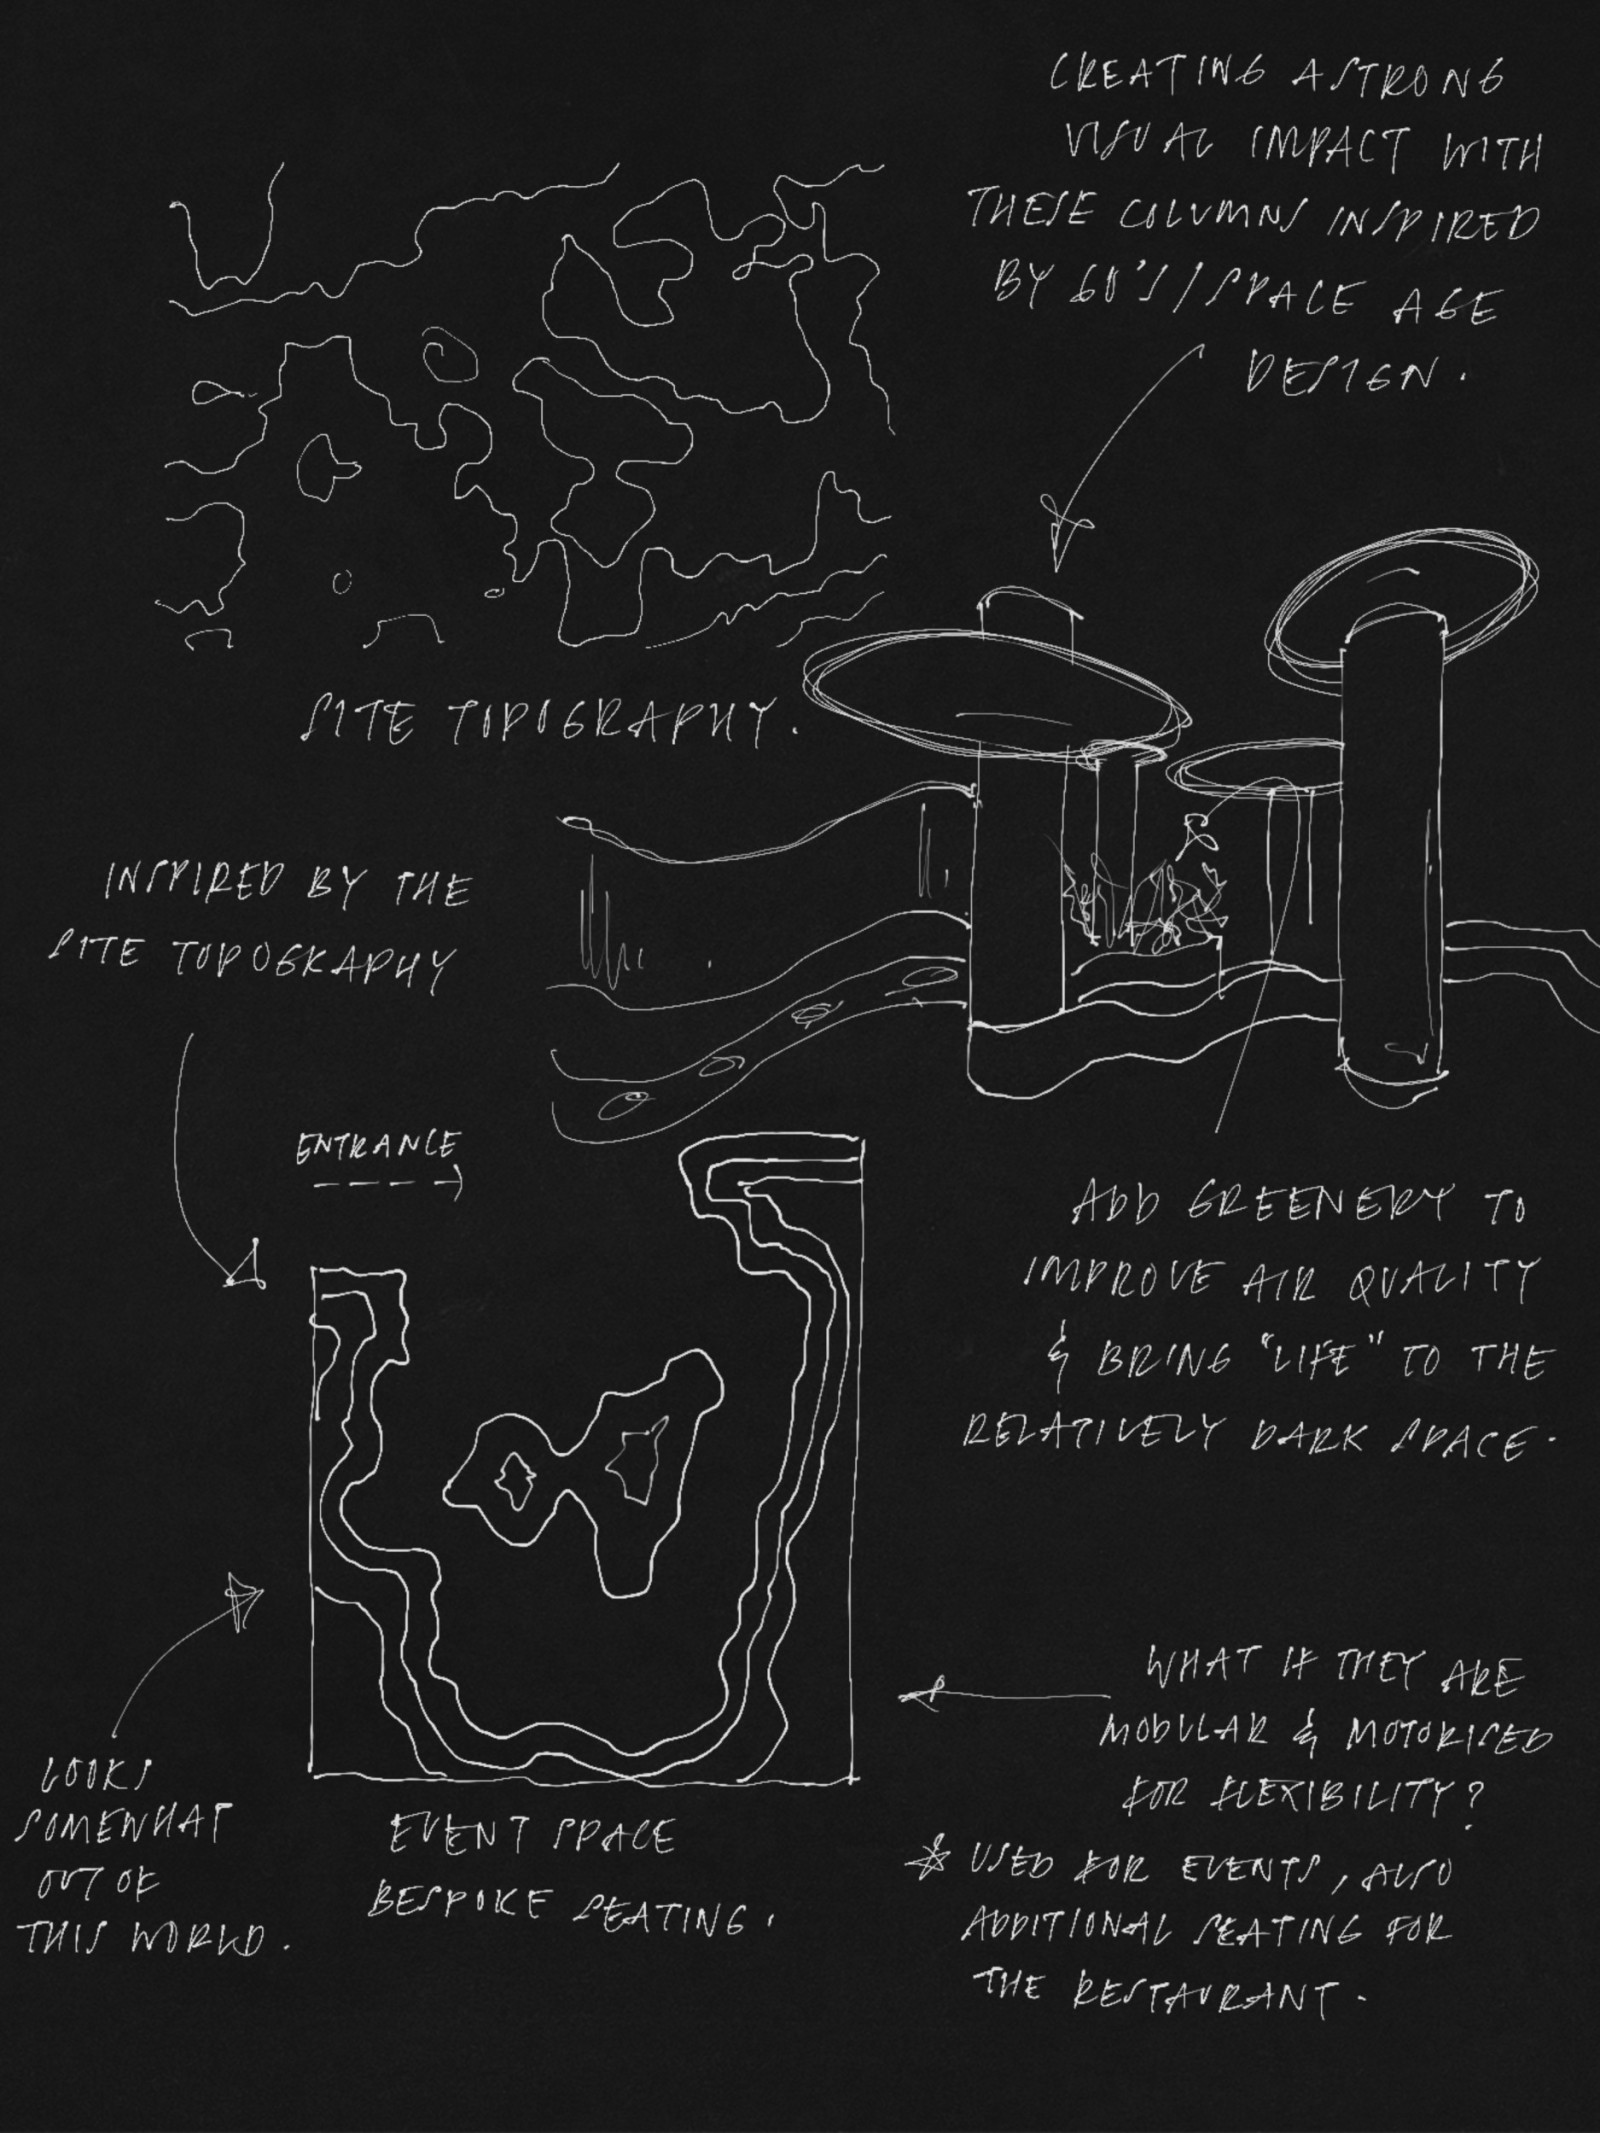 CREATING A STRONG
VISUAL IMPACT WITH
THESE COLUMNS INSPIRED
BY 60'S / SPACE AGE
DESIGN.
SITE TOPOGRAPHY.
INSPIRED BY THE
SITE TOPOGRAPHY
ENTRANCE
ADD GREENERY TO
IMPROVE AIR QUALITY
& BRING "LIFE" TO THE
RELATIVELY DARK SPACE.
WHAT IF THEY ARE
MODULAR & MOTORISED
FOR FLEXIBILITY?
* USED FOR EVENTS, ALSO
ADDITIONAL SEATING FOR
THE RESTAURANT.
LOOKS
SOMEWHAT
OUT OF
THIS WORLD.
EVENT SPACE
BESPOKE SEATING.